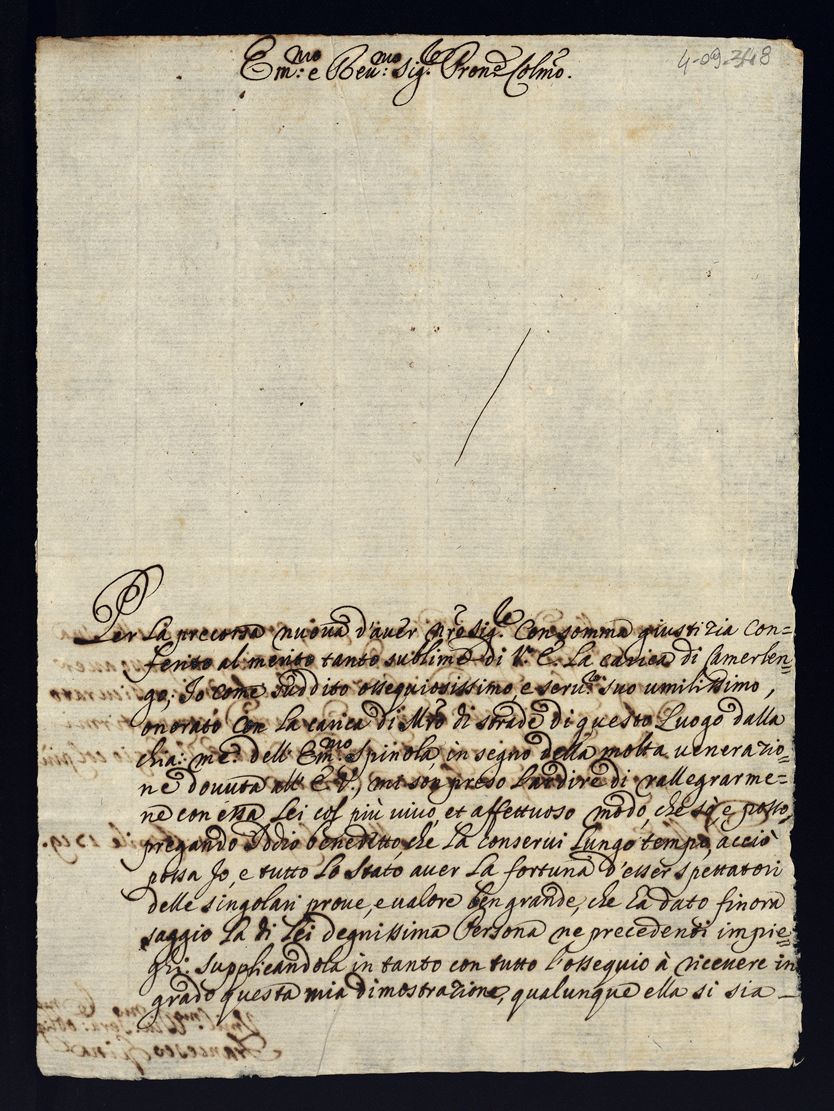 4-09-348
Em:mo e Reu:mo Sig:re Prone Colmo.
Per la precorsa nuova d'auer Nro Sig:re con somma giustizia con=
ferito al merito tanto sublime di V. E. la carica di Camerlen=
go; Io come suddito ossequiosissimo e seru:re suo umilissimo,
onorato con la carica di Mro di strade di questo Luogo dalla
chia: me: dell' Em:mo Spinola, in segno della molta uenerazio=
ne douuta all' E. V., mi son preso l'ardire di rallegrarme=
ne con essa Lei col più uiuo, et affettuoso modo, che si è posto,
pregando Iddio benedetto, che La conserui Lungo tempo, acciò
possa Io, e tutto Lo Stato auer La fortuna d'esser spettatori
delle singolari proue, e ualore ben grande, che hà dato finora
saggio La di Lei degnissima Persona ne precedenti impie=
ghi: supplicandola in tanto con tutto l'ossequio à riceuere in
grado questa mia dimostrazione, qualunque ella si sia _